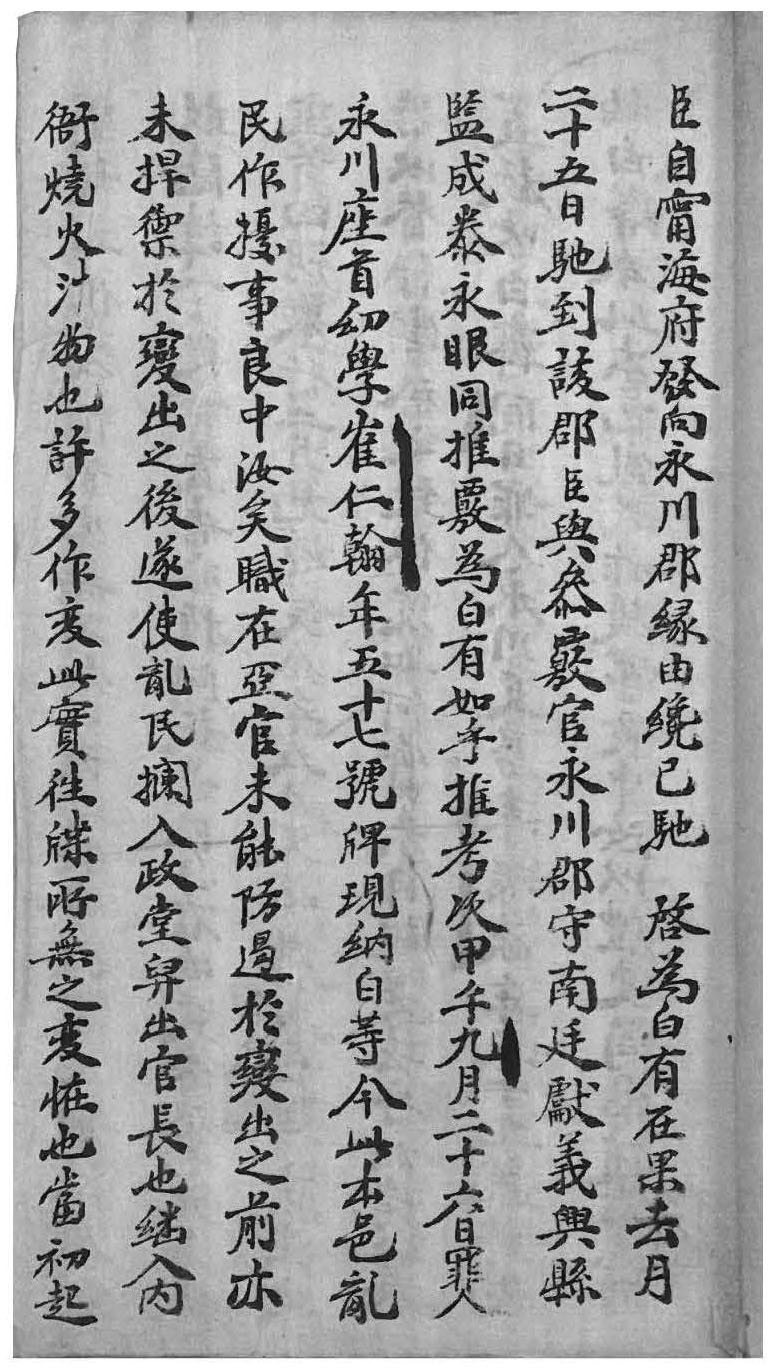 臣自甯海府發向永川郡緣由纔已馳 啓爲白有在果去月
二十五日馳到該郡臣與叅覈官永川郡守南廷獻義興縣
監成泰永眼同推覈爲白有如乎推考次甲午九月二十六日罪人
永川座首幼學崔仁翰年五十七號牌現納白等今此本邑亂
民作擾事良中汝矣職在亞官未能防遏於變出之前亦
未捍禦於變出之後遂使亂民攔入政堂舁出官長也繼入內
衙燒火汁物也許多作変此實往牒所無之変恠也當初起